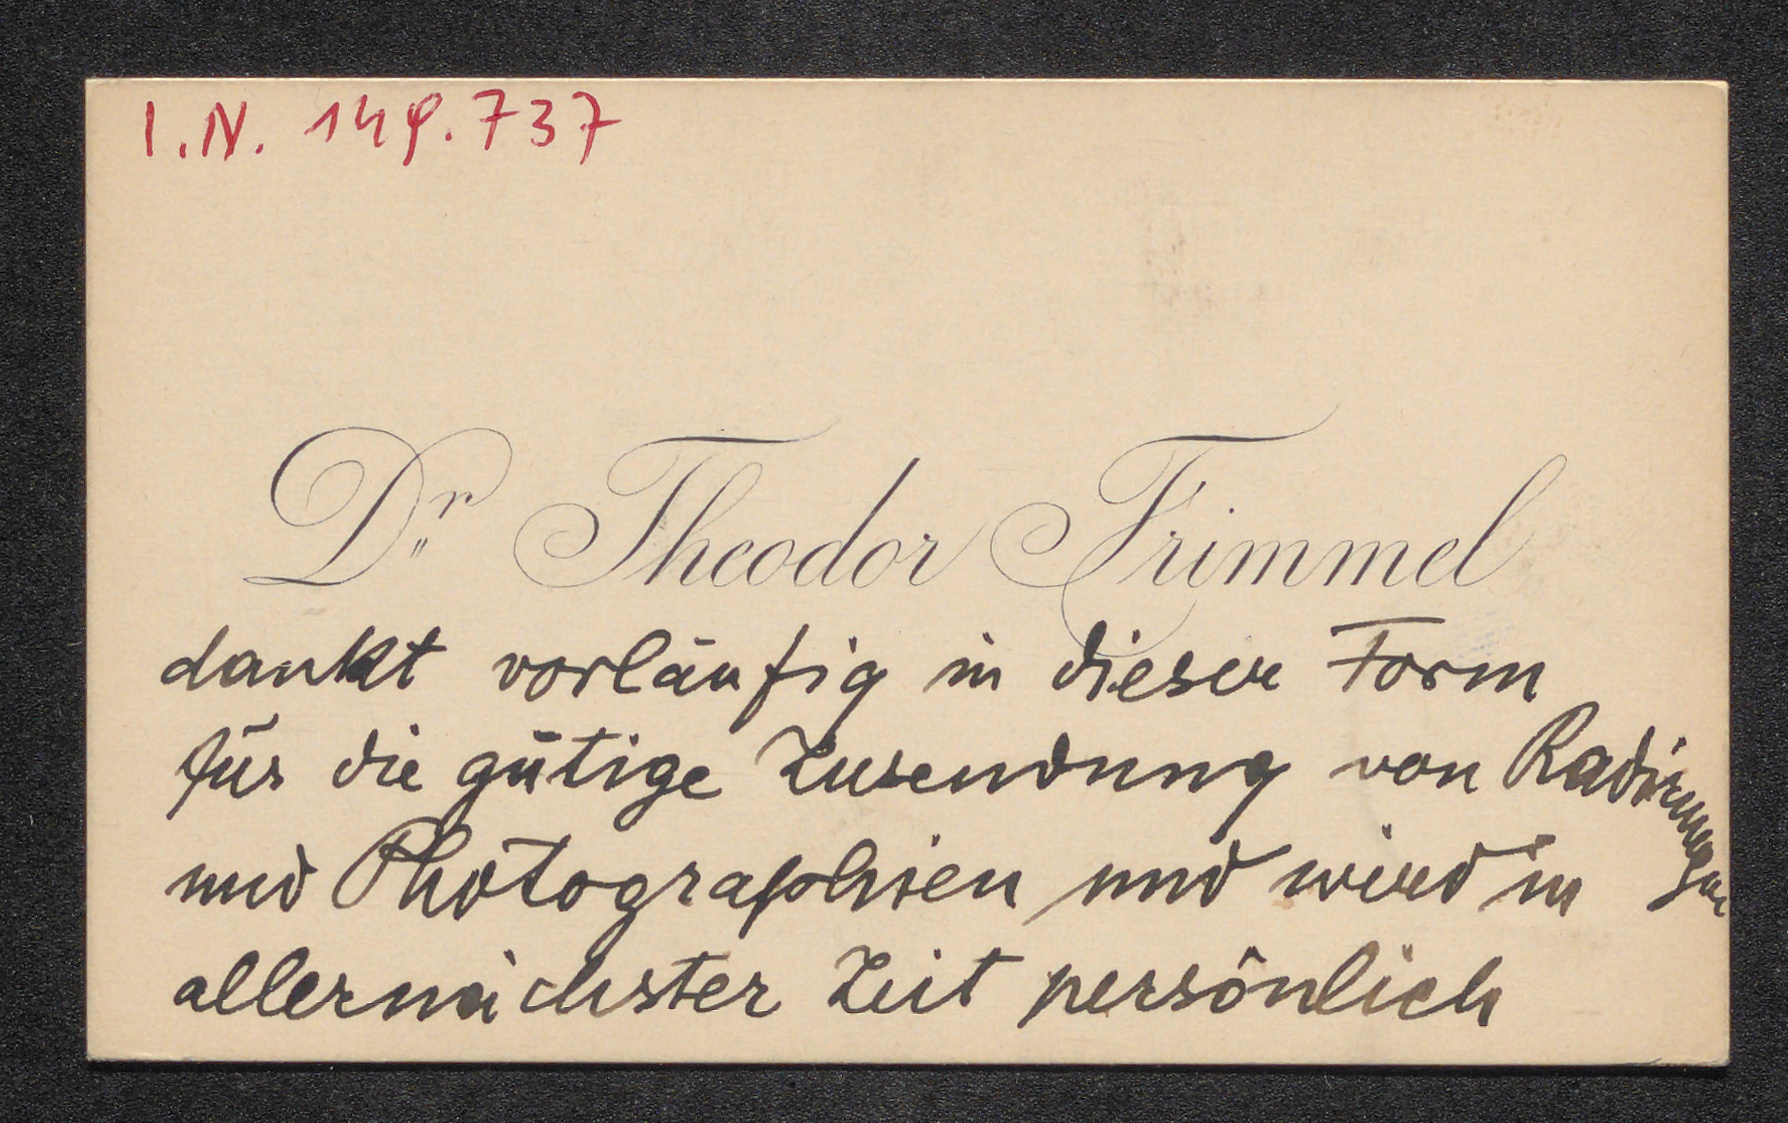 I.N. 149.737
Dr. Theodor Frimmel
dankt vorläufig in dieser Form
für die gütige Zusendung von Radirungen
und Photographien und wird in
allernächster Zeit persönlich